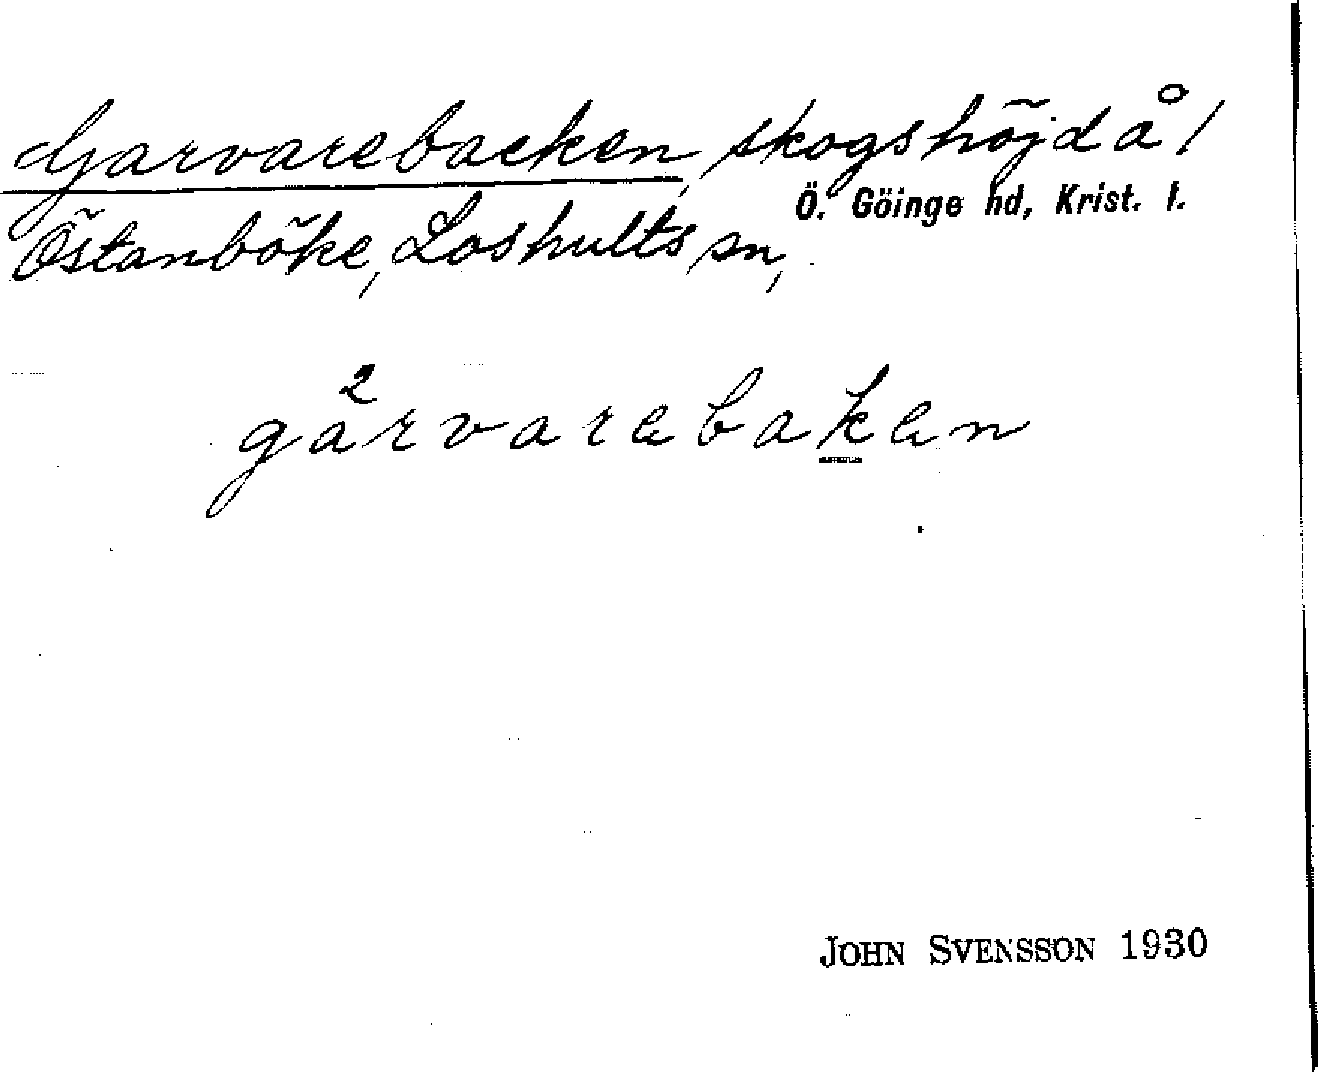 Garvarebacken, skogshöjd å /
Ö. Göinge hd, Krist. l.
Östanböke, Loshults sn,
2
gàrvarebaken
JOHN SVENSSON 1930